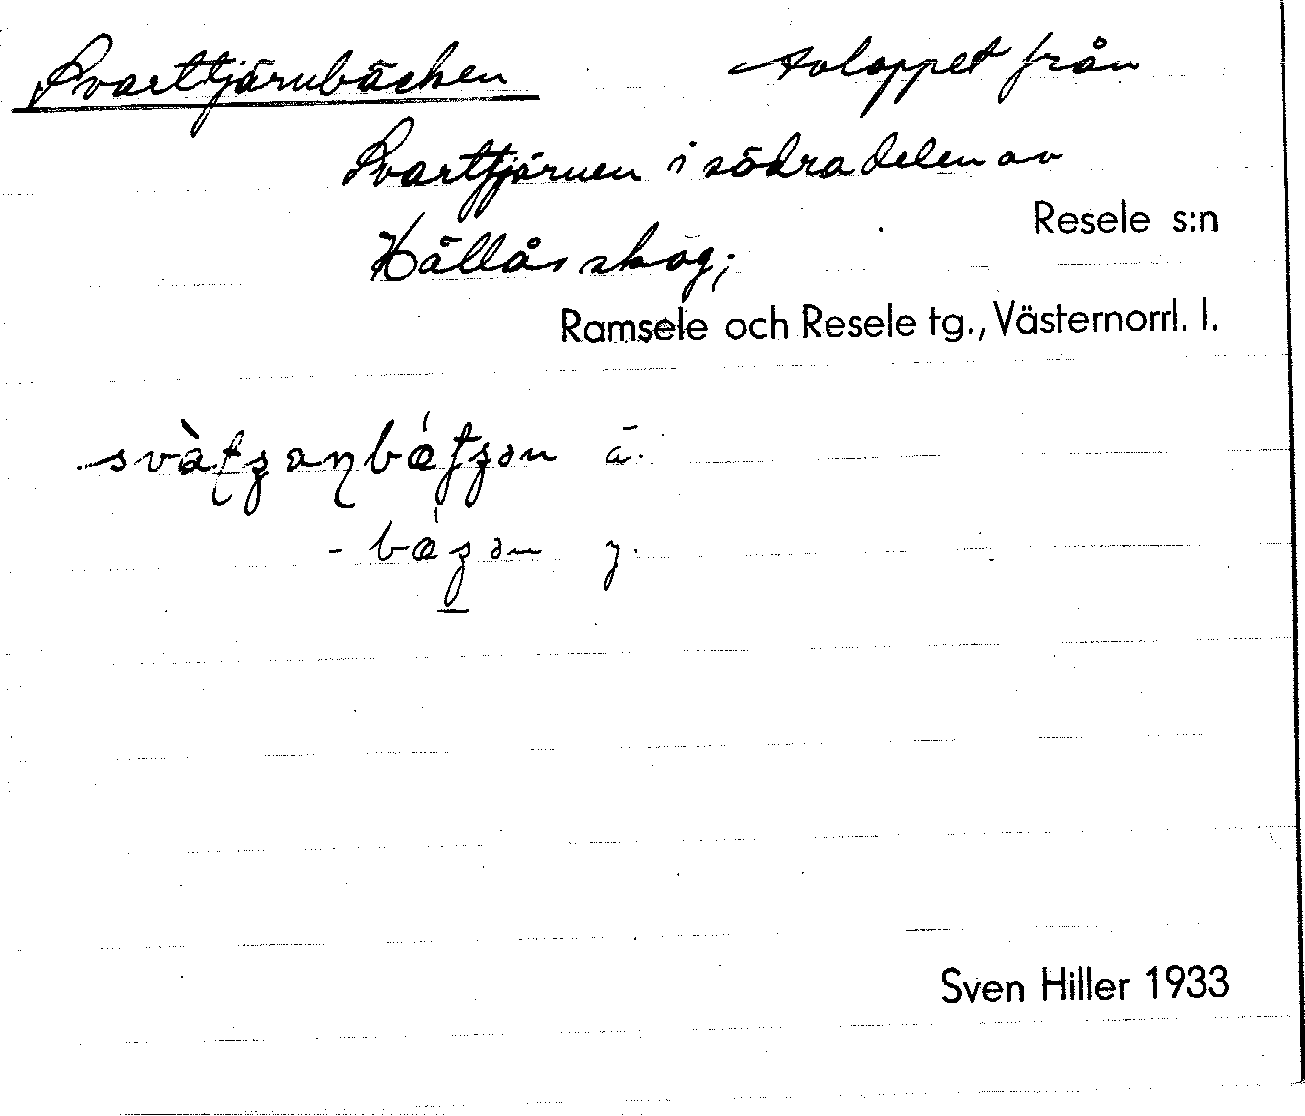 Svarttjärnbäcken Avloppet från
Svarttjärnen i södra delen av
Resele s:n
Hällås skog;
Ramsele och Resele tg., Västernorrl. l.
ä.
y.
Sven Hiller 1933